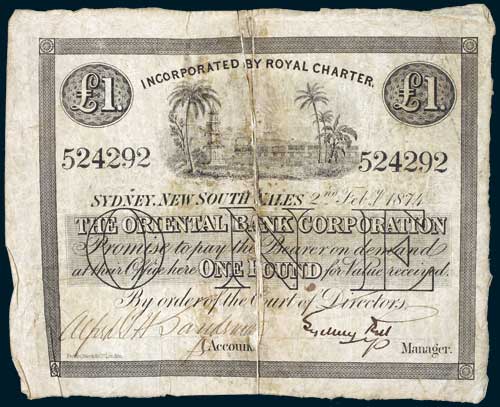 INCORPORATED BY ROYAL CHARTER.
£1. £1.
524292 524292
SYDNEY, NEW SOUTH WALES 2nd Feby 1874
THE ORIENTAL BANK CORPORATION
Promise to pay the Bearer on demand
at their Office here ONE POUND for Value received.
ONE
By order of the Court of Directors.
Manager.